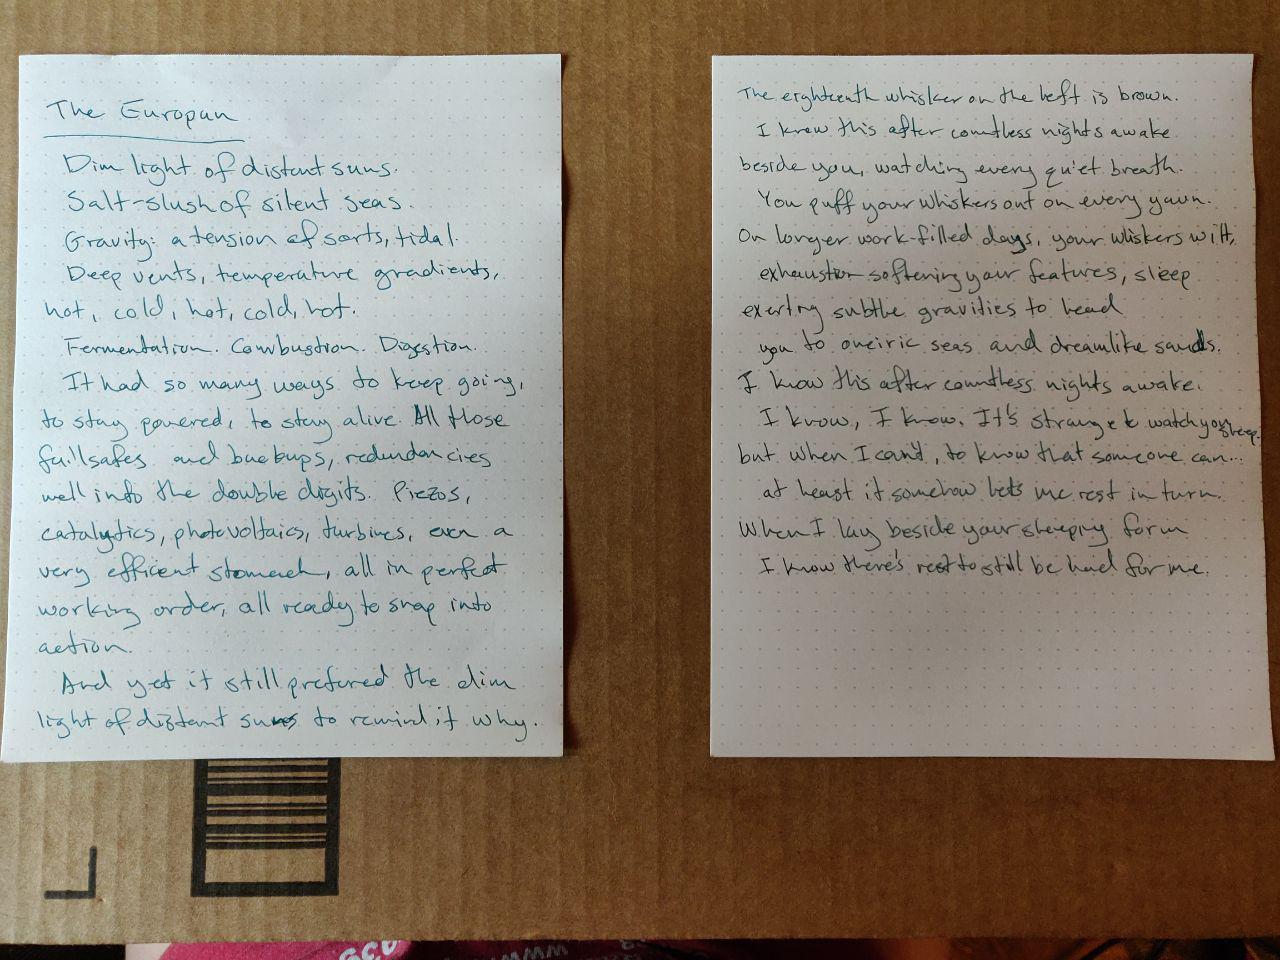 The Europan
Dim light of distant suns.
Salt-slush of silent seas.
Gravity: a tension of sorts, tidal.
Deep vents, temperature gradients,
hot, cold, hot, cold, hot.
Fermentation. Combustion. Digestion.
It had so many ways to keep going,
to stay powered, to stay alive. All those
failsafes and backups, redundancies
well into the double digits. Piezos,
catalytics, photovoltaics, turbines, even a
very efficent stomach, all in perfect
working order, all ready to snap into
action.
And yet it still prefered the dim
light of distant suns to remind it why.
The eighteenth whisker on the left is brown.
I know this after countless nights awake
beside you, watching every quiet breath.
You puff your whiskers out on every yawn.
On longer work-filled days, your whiskers wilt,
exhaustion softening your features, sleep
exerting subtle gravities to lead
you to oneiric seas and dreamlike sands.
I know this after countless nights awake.
I know, I know. It's strange to watch you sleep
but when I can't, to know that someone can...
at least it somehow lets me rest in turn.
When I lay beside your sleeping form
I know there's rest to still be had for me.
WWW